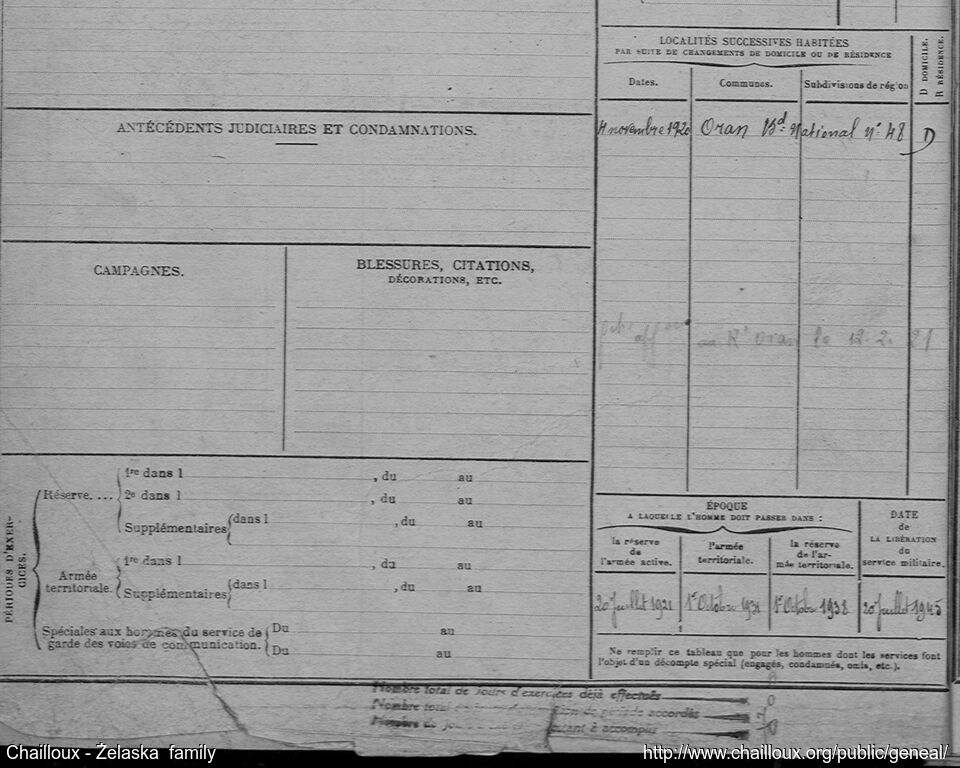 ANTÉCÉDENTS JUDICIAIRES ET CONDAMNATIONS.
CAMPAGNES.
BLESSURES, CITATIONS,
DÉCORATIONS, ETC.
PÉRIODES D'EXER-
CICES.
Réserve....
1re dans l , du au
2e dans l , du au
Supplémentaires dans l , du au
Armée
territoriale.
1re dans l , du au
Supplémentaires dans l , du au
Spéciales aux hommes du service de
garde des voies de communication.
Du au
Du au
LOCALITÉS SUCCESSIVES HABITÉES
PAR SUITE DE CHANGEMENTS DE DOMICILE OU DE RÉSIDENCE
Dates.
Communes.
Subdivisions de région
D DOMICILE.
R RÉSIDENCE.
4 novembre 1920 Oran Bd. National n° 48 D
au Rt Oran le 12. 2. 21
ÉPOQUE
A LAQUELLE L'HOMME DOIT PASSER DANS :
la réserve
de
l'armée active.
l'armée
territoriale.
la réserve
de l'ar-
mée territoriale.
DATE
de
LA LIBÉRATION
du
service militaire.
20 Juillet 1921
1er Octobre 1931
1er Octobre 1938
20 Juillet 1945
Ne remplir ce tableau que pour les hommes dont les services font
l'objet d'un décompte spécial (engagés, condamnés, omis, etc.).
Nombre total de jours d'exercices déjà effectués
Nombre total de période accordés
Nombre de à accomplir
Chailloux - Żelaska family
http://www.chailloux.org/public/geneal/